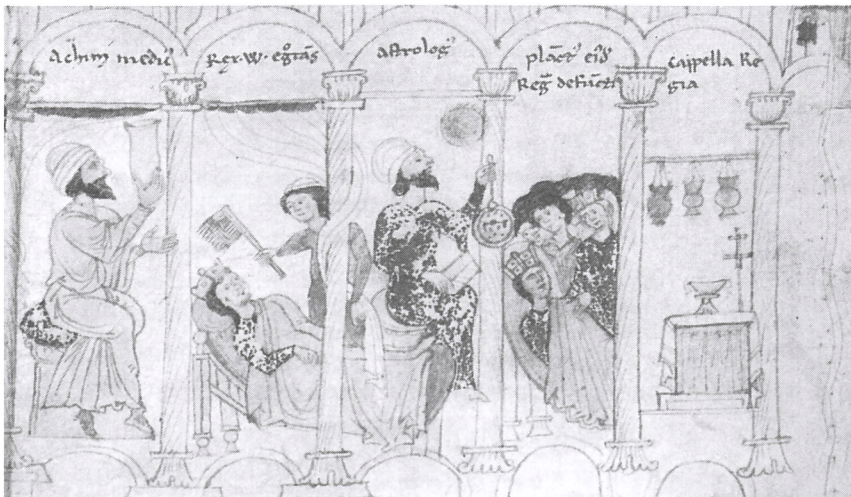 Achim medicꝰ
Rex·W·egͦtās
astrologꝰ
plāctꝰ eiꝰd
Reḡ defūcti
Cappella Re
gia